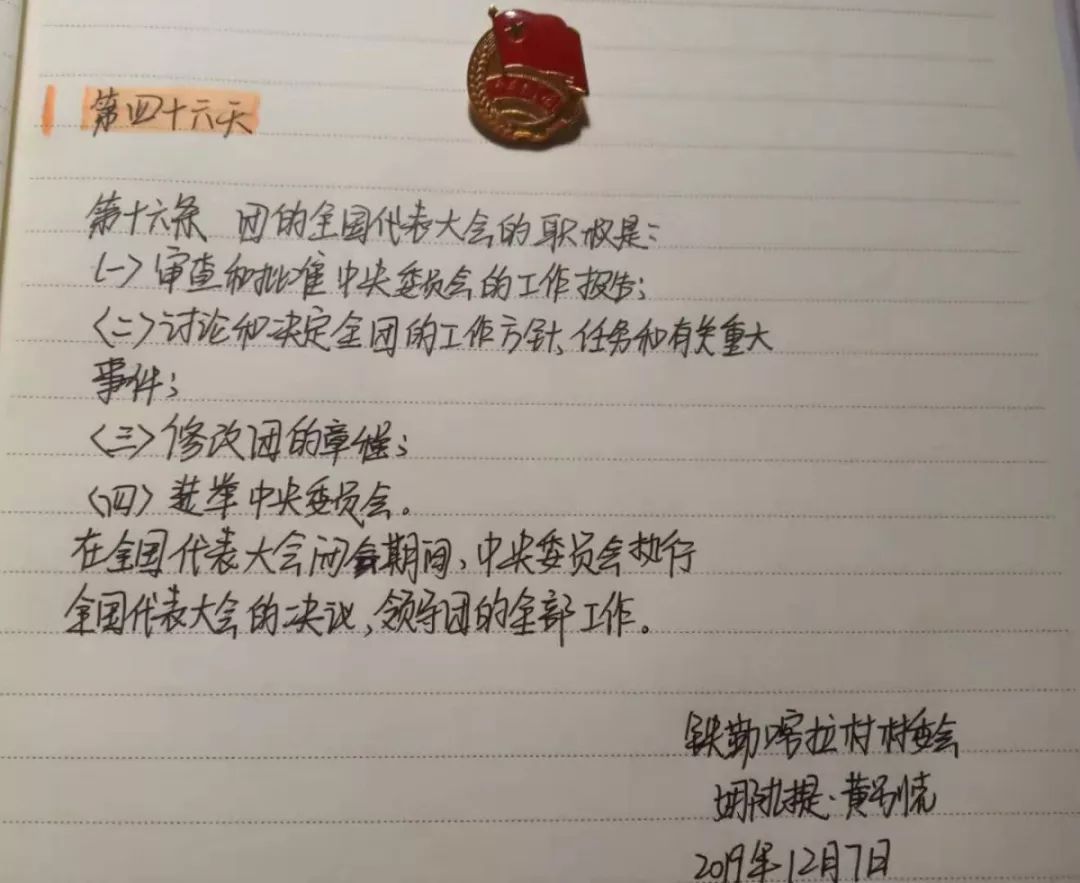 第四十六天
第十六条 团的全国代表大会的职权是:
(一)审查和批准中央委员会的工作报告;
(二)讨论和决定全团的工作方针、任务和有关重大
事件;
(三)修改团的章程;
(四)选举中央委员会。
在全国代表大会闭会期间,中央委员会执行
全国代表大会的决议,领导团的全部工作。
铁勒喀拉村村委会
2019年12月7日